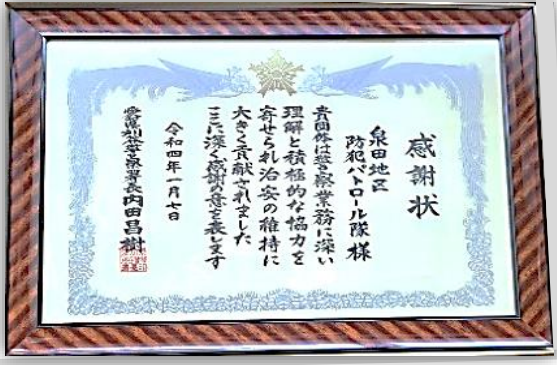 感謝状
泉田地区
防犯パトロール隊 様
貴団体は警察業務に深い
理解と積極的な協力を
寄せられ治安の維持に
大きく貢献されました
ここに深く感謝の意を表します
令和四年一月七日
愛知県刈谷警察署長 内田昌樹